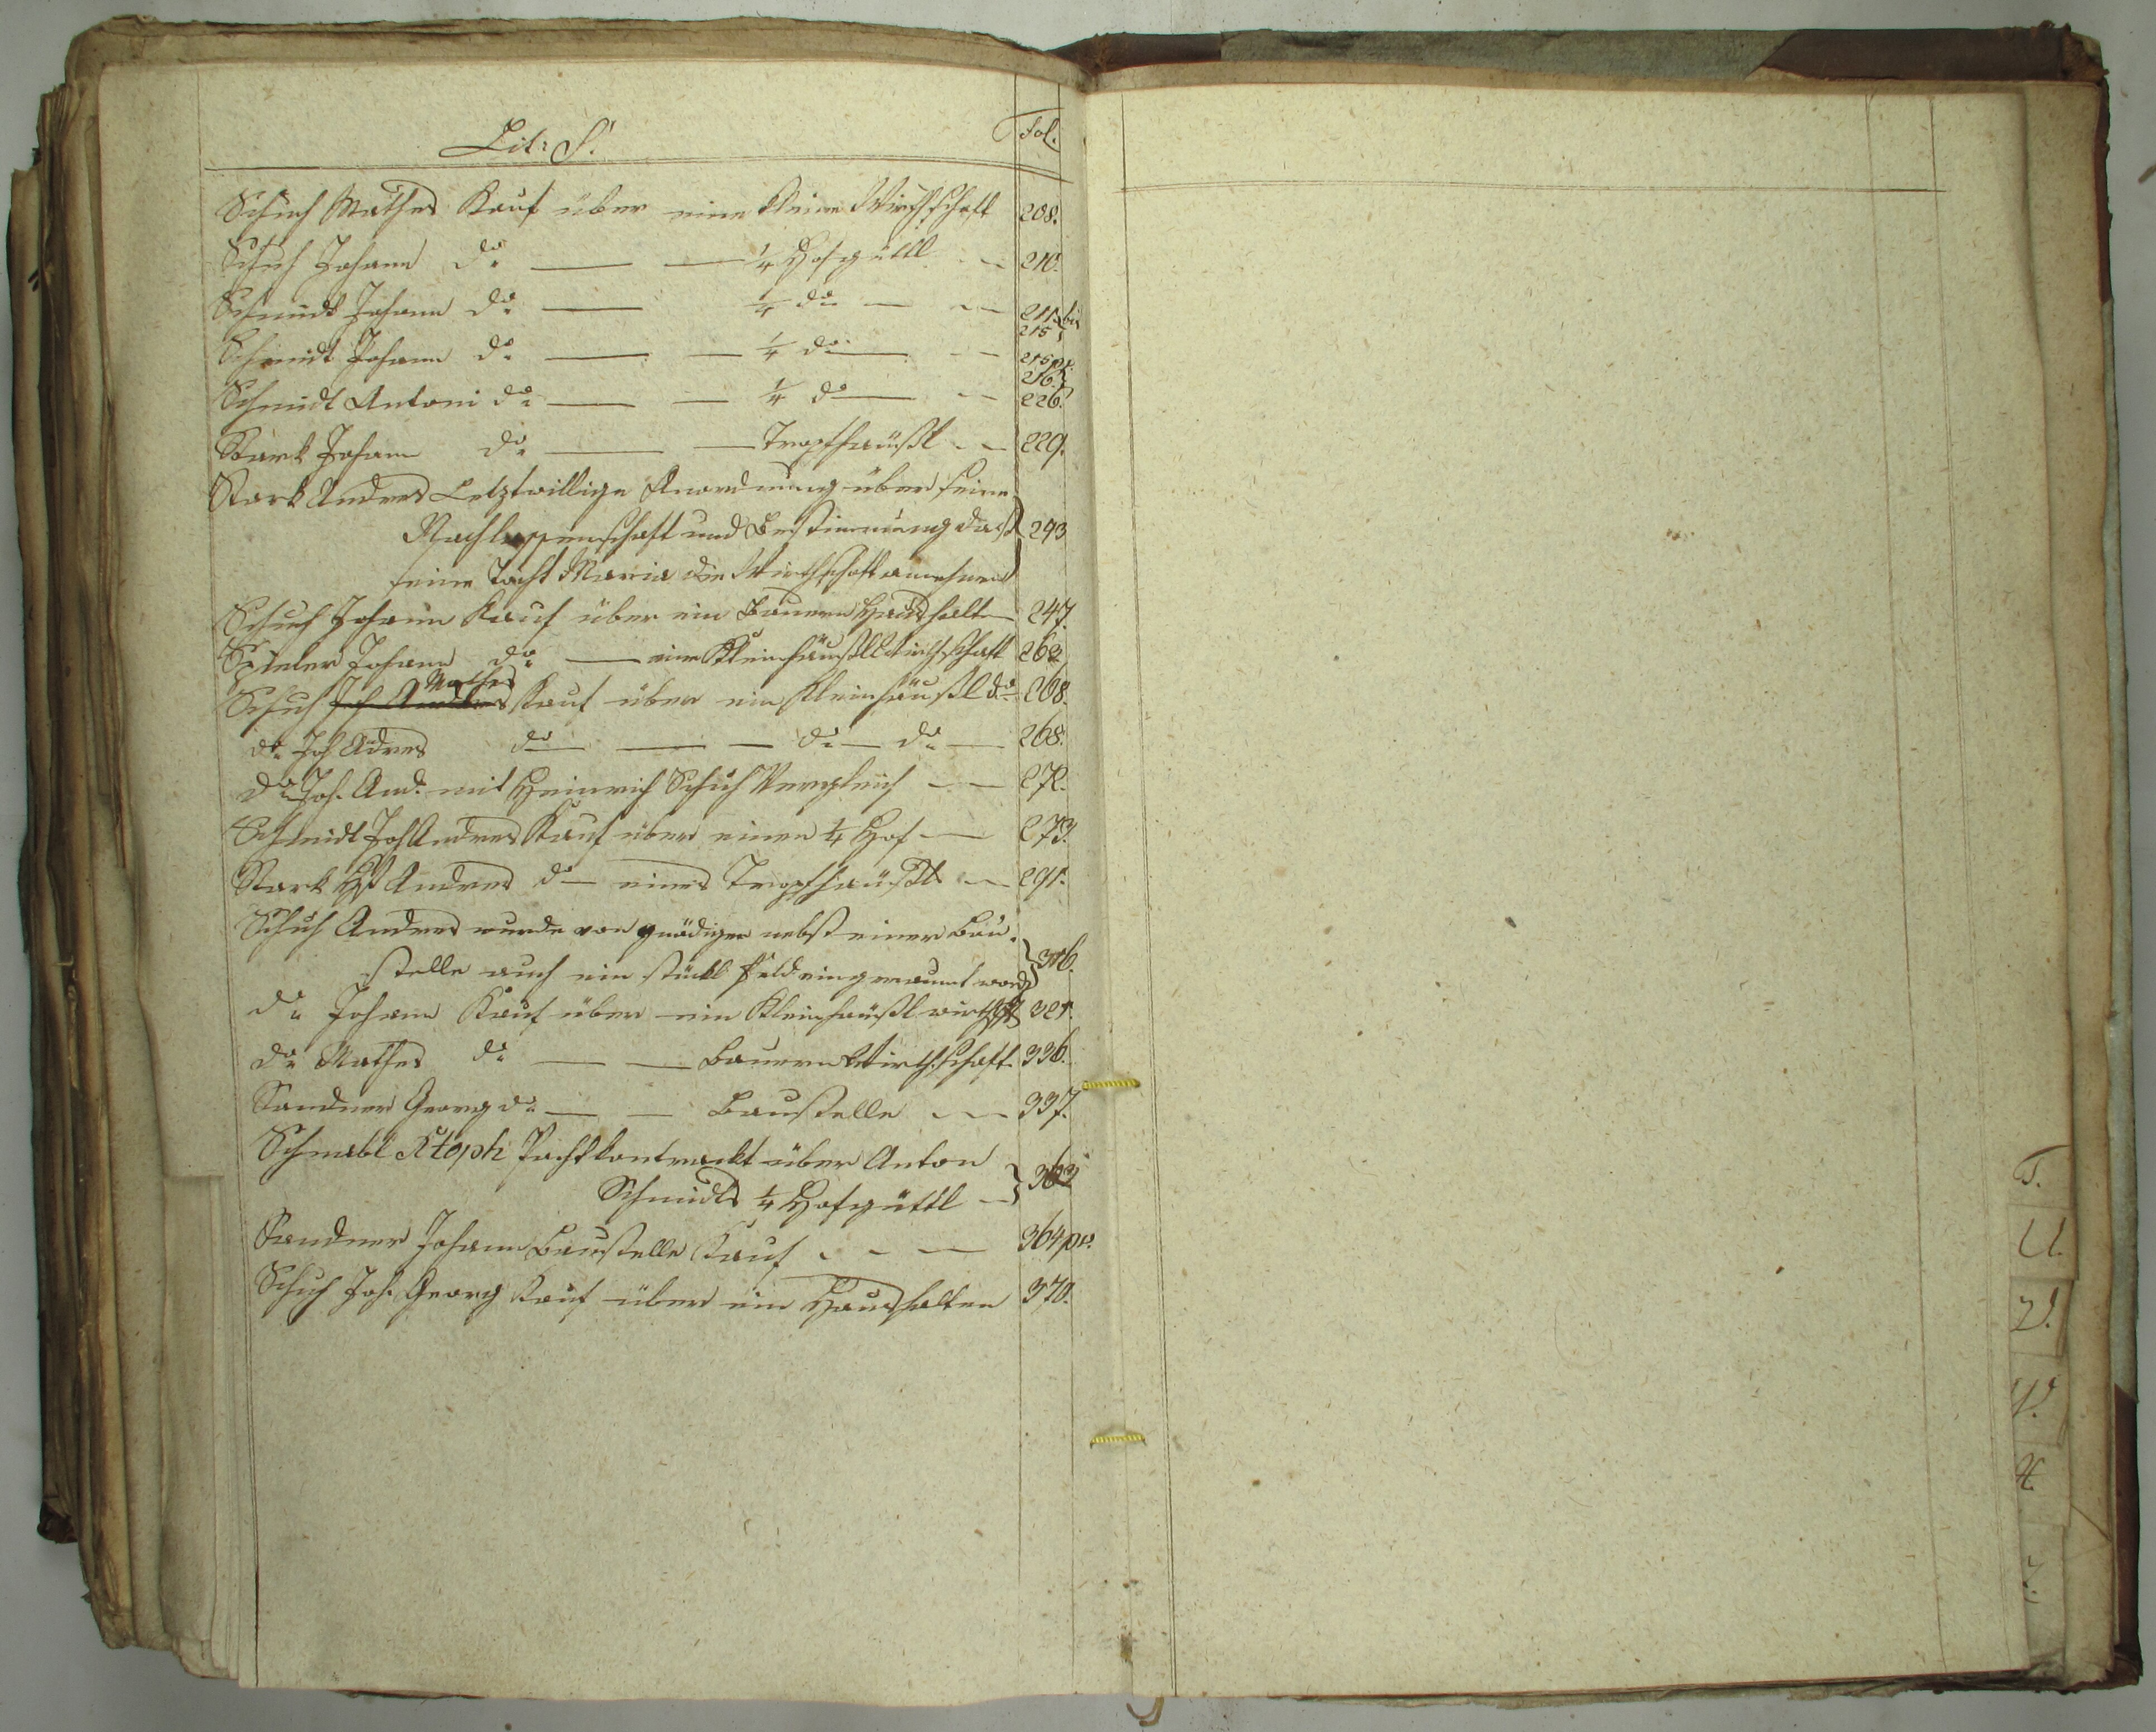 Lit: S.
Fol.
Schuh Mathes Kauf über eine kleine Wirthschaft 208.
Schuh Johann do — — 1/4 Hofgüttl — 210.
Schmidt Johann do — 1/4 do — — 211. bis 215
Schmidt Johann do — — 1/4 do — — 215 pv. 216.
Schmidt Antoni do — — 1/4 do — — 226.
Stark Johann do — — Tropfhäußl — — 229.
Stark Andres Letztwillige Anordnung über seine
Nachlassenschaft und Bestimmung daß 243
seine Tocht Maria die Wirthschaft annehmen
Schuh Johann Kauf über ein Bauern Haushalten 247.
Johann do — eine Kleinhäußl Wirthschaft 262
Mathes
Schuh Joh Andres Kauf über ein Kleinhäußl do 268.
do Joh Adres do — — — do — do — 268.
do Joh. And. mit Heinrich Schuh Vergleich — — 272.
Schmidt Joh Andres Kauf über einen 1/4 Hof — 273.
Stark Andres do — eines Tropfhäußl — 291.
Schuh Andres wurde von gnädigen nebst einer Bau-
stelle auch ein stückl Feld eingeraumt word 316.
do Johann Kauf über ein Kleinhäußl wirthschft 321.
do Mathes do — — Bauern Wirthschaft 336.
Sandner Georg do — — Baustelle — — 337.
Schnabl Xtoph Pachtkontrackt über Anton
Schmidts 1/4 Hofgüttl — 363
Sandner Johann Baustelle Kauf - - — 364 pv.
Schuh Joh. Georg Kauf über ein Haushalten 370.
T.
U.
V.